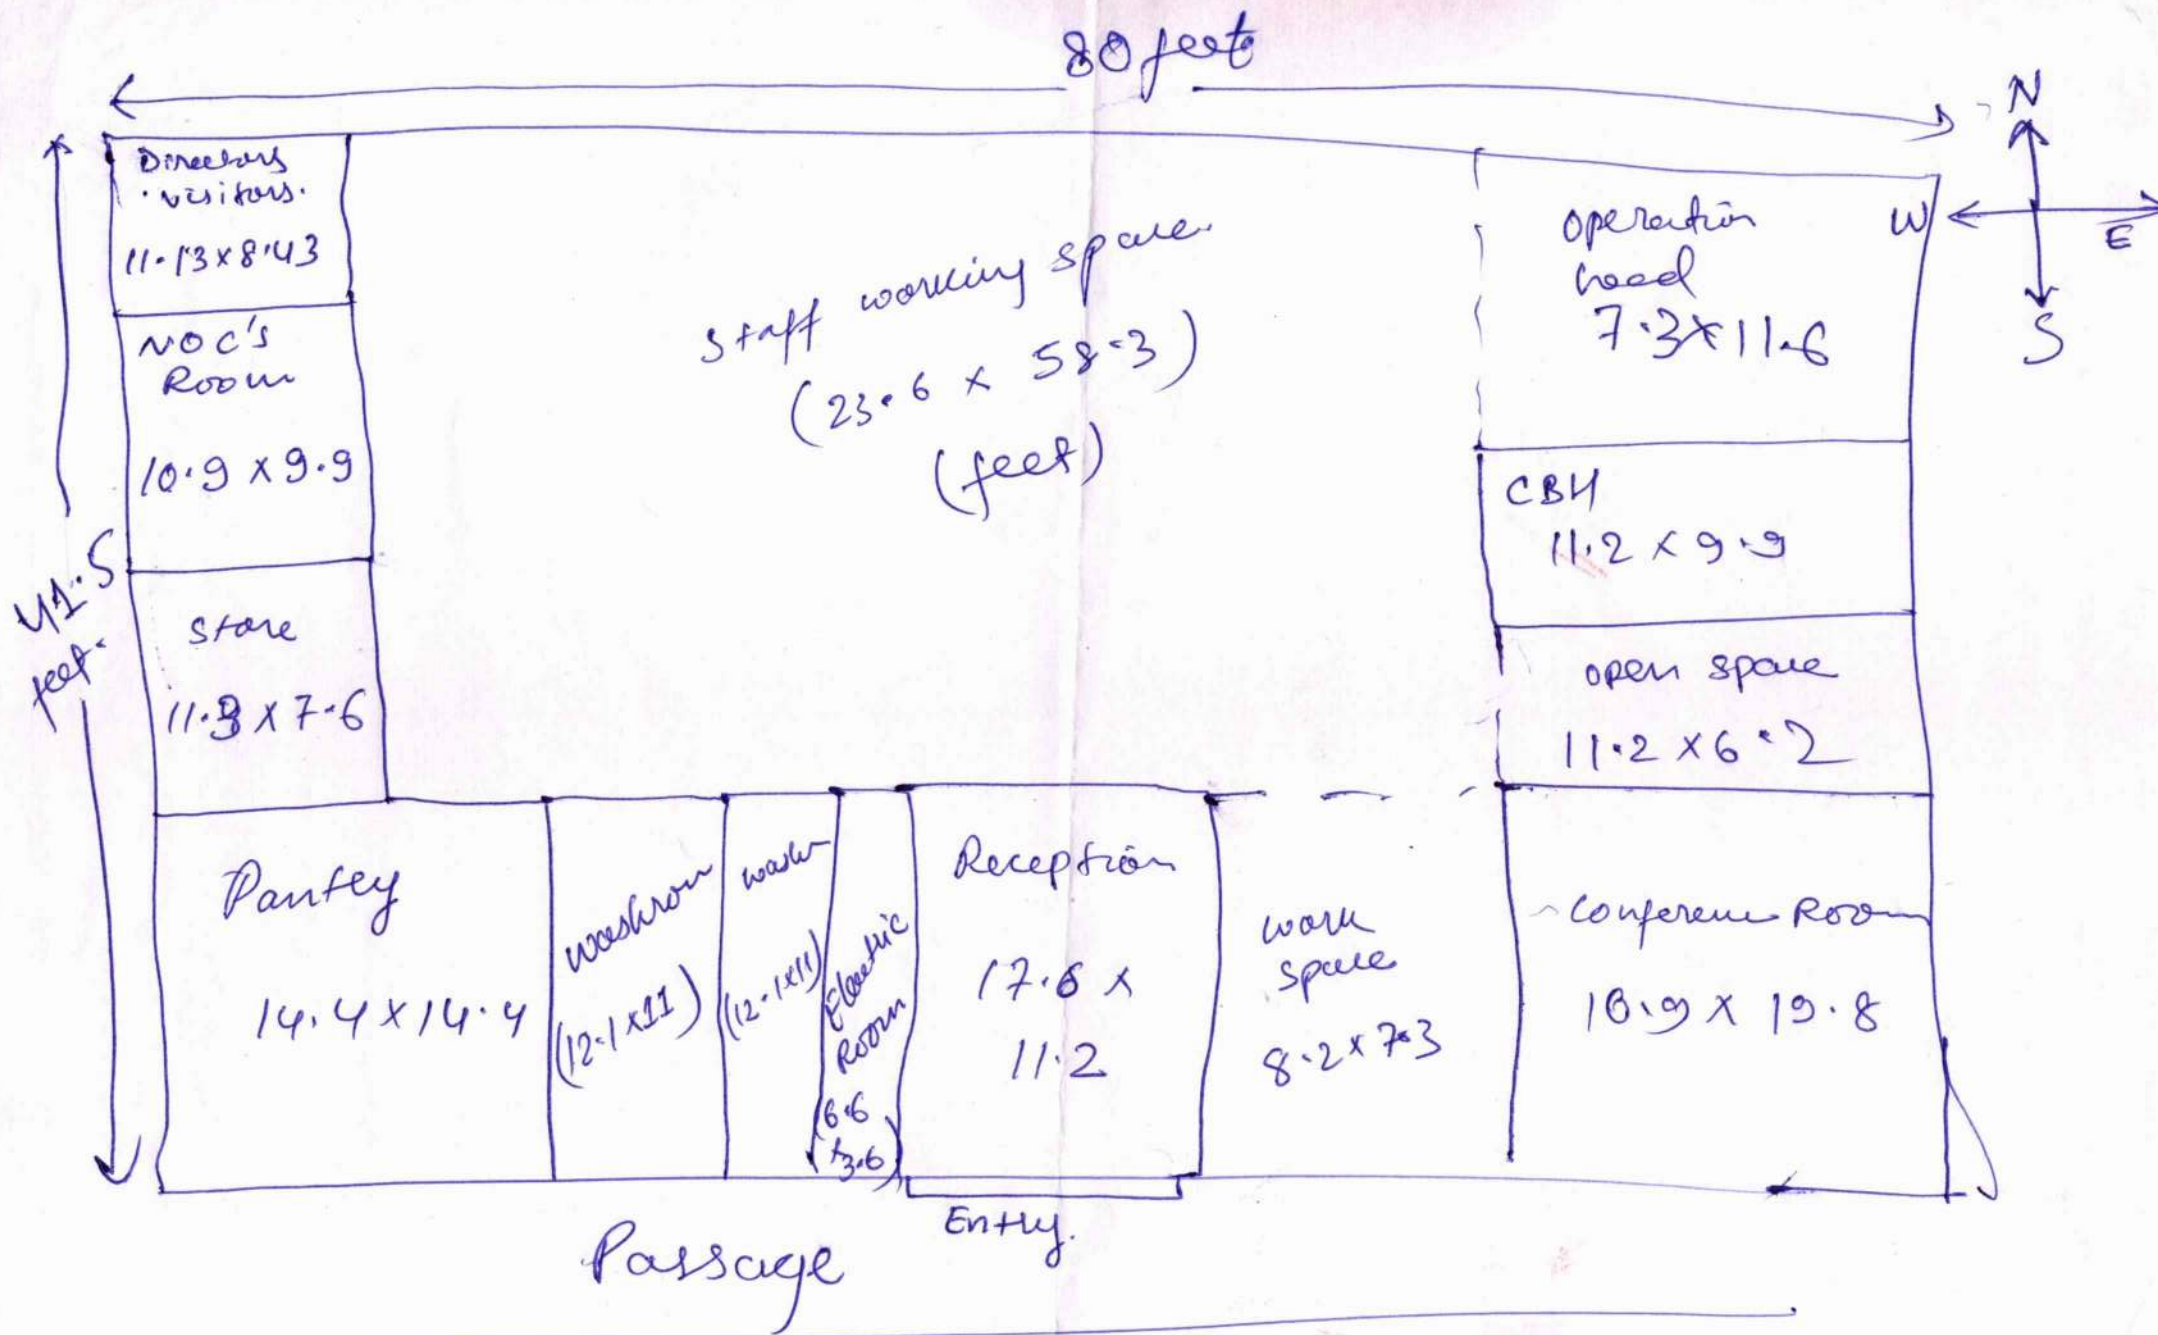 80 feet
N
W
E
S
41.5
feet.
Directors
visitors.
11.13 x 8.43
NOC's
Room
10.9 x 9.9
Store
11.3 x 7.6
Staff working space
(23.6 x 58.3)
(feet)
operation
head
7.3 x 11.6
CBH
11.2 x 9.9
open space
11.2 x 6.2
Pantry
14.4 x 14.4
washroom
(12.1 x 11)
(12.1 x 11)
Electric
Room
(6.6
x 3.6)
Reception
17.6 x
11.2
work
space
8.2 x 7.3
Conference Room
x 19.8
Entry.
Passage